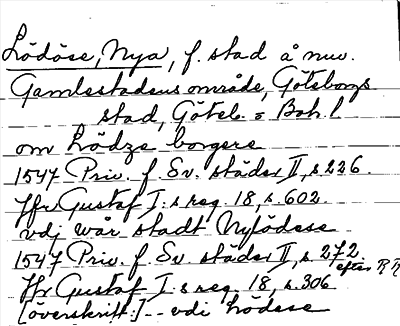 Lödöse, Nya, f. stad å nuv.
Gamlestadens område, Göteborgs
stad, Göteb. o Boh. l
om Lödze borgere
1547 Priv. f. Sv. städer II, s. 226.
Jfr Gustaf I:s reg. 18, s. 602.
vdj wår stadt Nylödese
1547 Priv. f. Sv städer II, s. 272 efter RR
Jfr Gustaf I:s reg. 18, s. 306
[överskrift:] -- vdi Lödese